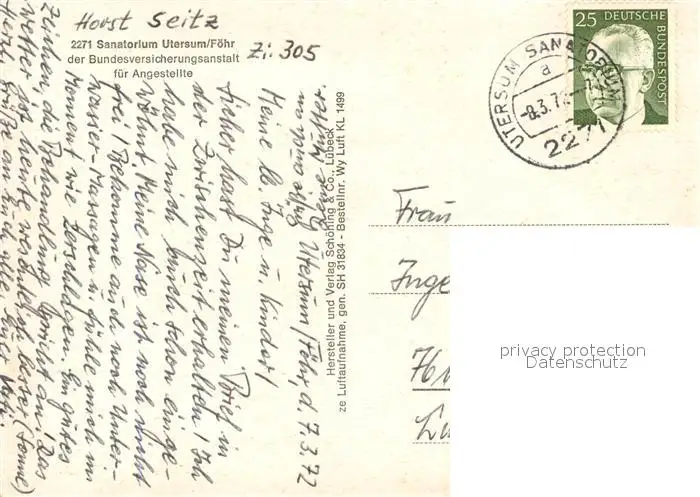 Horst Seitz
2271 Sanatorium Utersum/Föhr
der Bundesversicherungsanstalt
für Angestellte
Zi. 305
Utersum/Föhr, d. 7.3.72
Meine lb. Inge u. Kinder!
Sicher hast Du meinen Brief in
der Zwischenzeit erhalten! Ich
habe mich auch schon einge-
wöhnt. Meine Nase ist noch nicht
frei! Bekomme auch noch Unter-
wasser-Massagen u. fühle mich im
Moment wie zerschlagen. Ein gutes
Zeichen, die Behandlung spricht an! Das
Wetter ist heute (Sonne)
Grüße an Euch alle Euer
Hersteller und Verlag Schöning & Co., Lübeck
ze Luftaufnahme, gen. SH 31834 - Bestellnr. Wy Luft KL 1499
25 DEUTSCHE
BUNDESPOST
UTERSUM SANATORIUM
a
-8.3.72
2271
Frau
Inge
privacy protection
Datenschutz